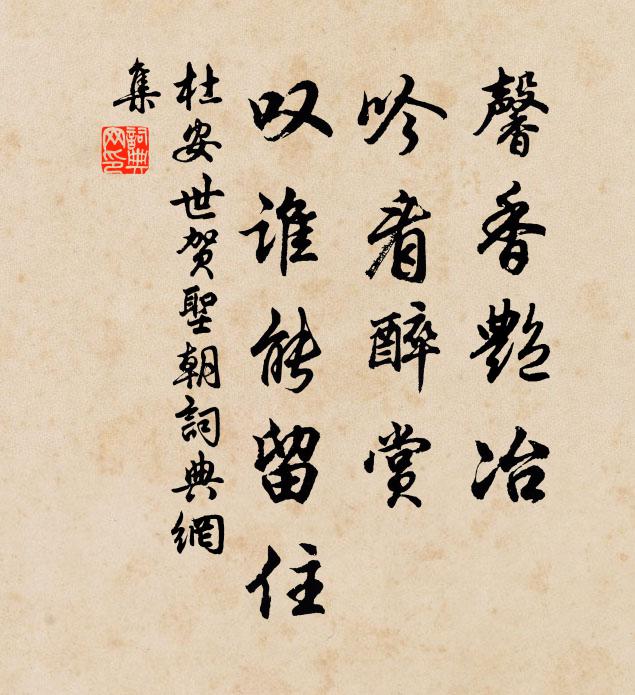 馨香艷冶
吟看醉賞
叹谁能留住
杜安世贺聖朝詞典網
集
詞典
网印